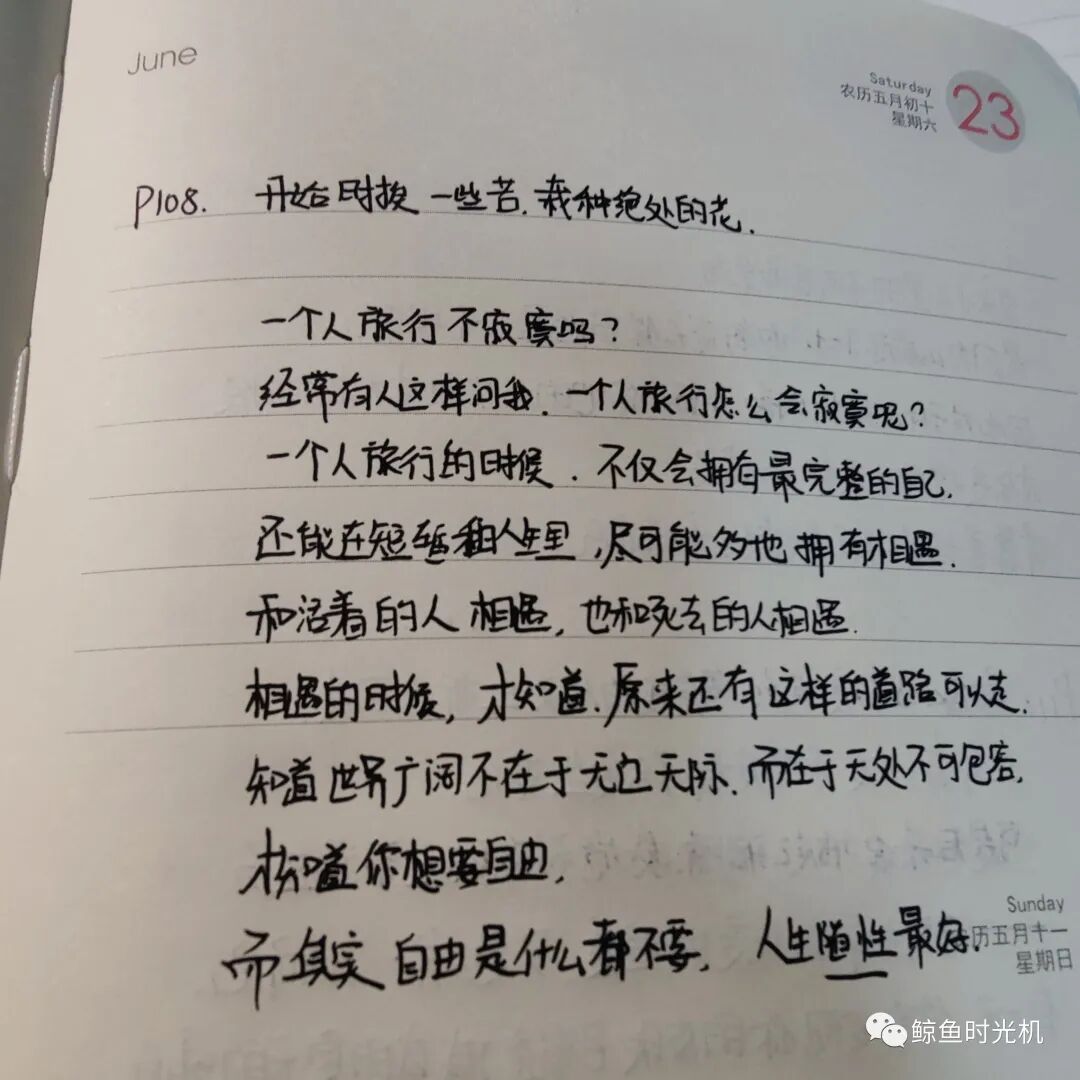 June
Saturday
农历五月初十
星期六
23
P108. 开始时按一些苦,栽种绝处的花.
一个人旅行不寂寞吗?
经常有人这样问我.一个人旅行怎么会寂寞呢?
一个人旅行的时候.不仅会拥有最完整的自己.
还能在短暂和人生里,尽可能多地拥有相遇.
和活着的人相遇,也和死去的人相遇.
相遇的时候,才知道.原来还有这样的道路可以走.
知道世界广阔不在于无边无际.而在于无处不可包容.
才知道你想要自由,
而其实自由是什么都不要. 人生随性最好.
Sunday
历五月十一
星期日
鲸鱼时光机